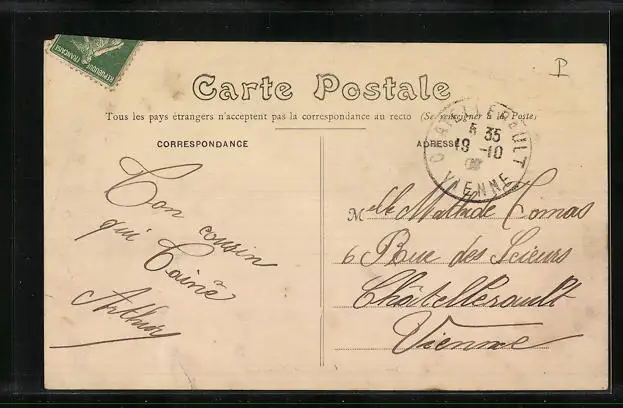 RÉPUBLIQUE FRANÇAISE
P
Carte Postale
Tous les pays étrangers n'acceptent pas la correspondance au recto (Se renseigner à la Poste)
CORRESPONDANCE
ADRESSE
CHATELLERAULT
5 35
19 -10
VIENNE
Ton cousin
qui t'aime
Arthur
Melle Mathilde Tomas
6 Rue des Scieurs
Châtellerault
Vienne